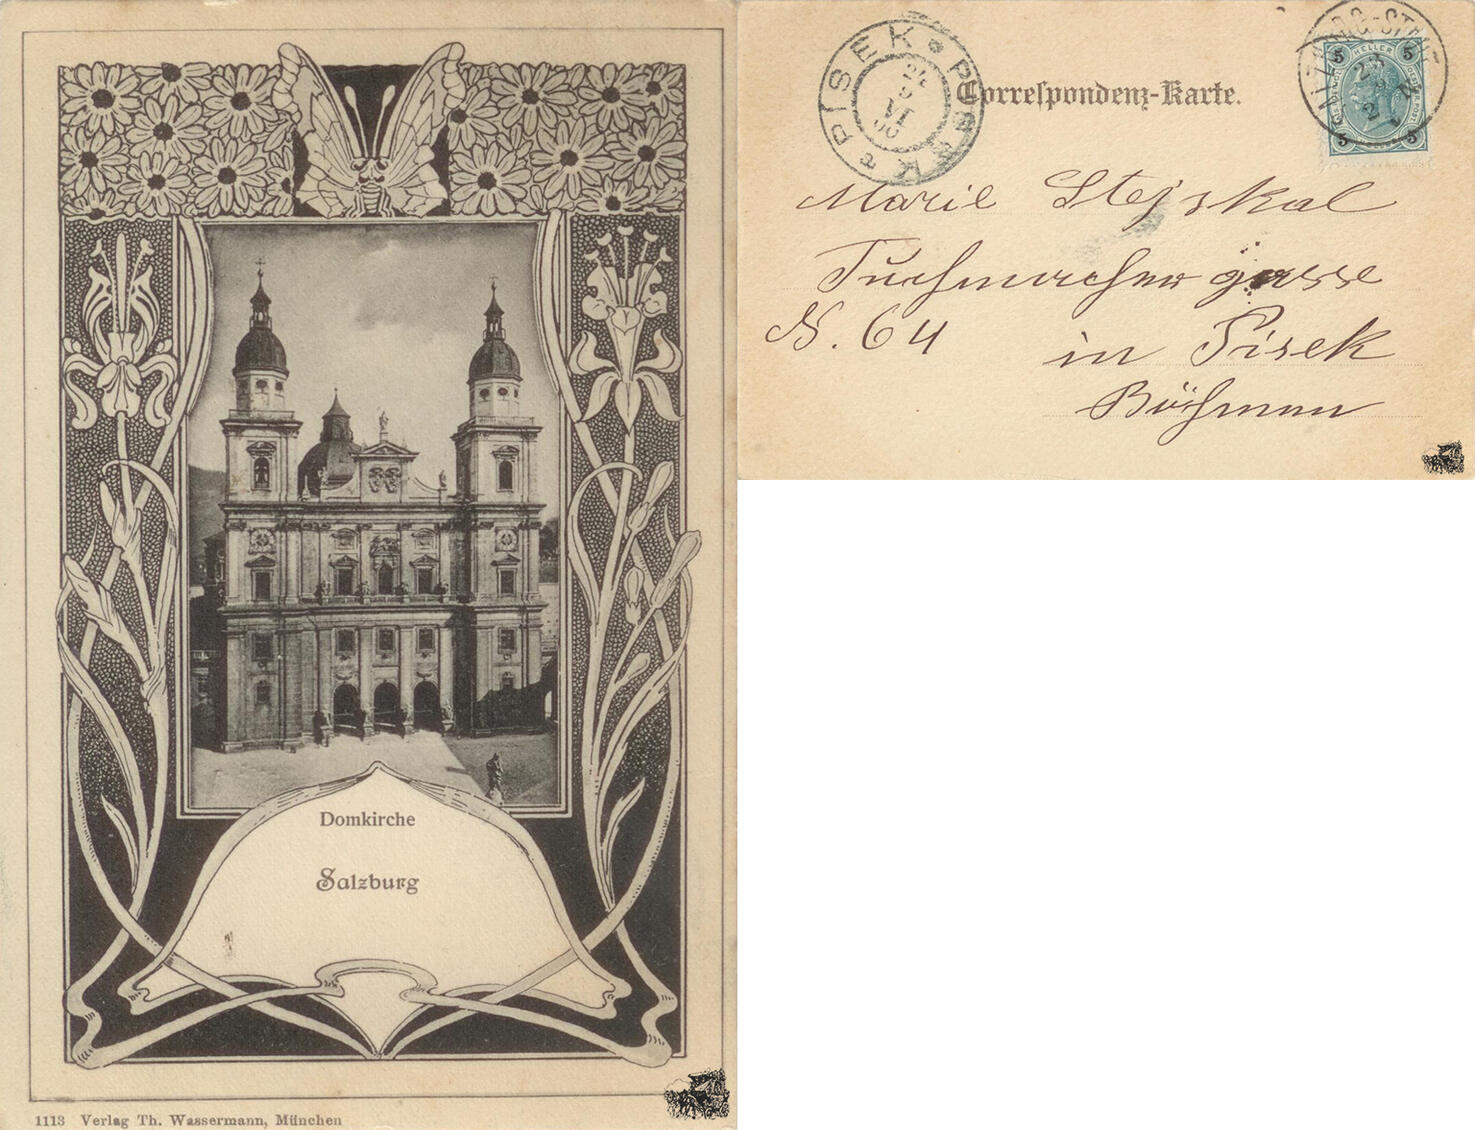 Domkirche
Salzburg
1113 Verlag Th. Wassermann, München
Correspondenz-Karte.
PISEK * PISEK *
24
VI
00
5 HELLER 5
5 5
23
Marie Stejskal
Tuchmachergasse
N. 64
in Pisek
Böhmen